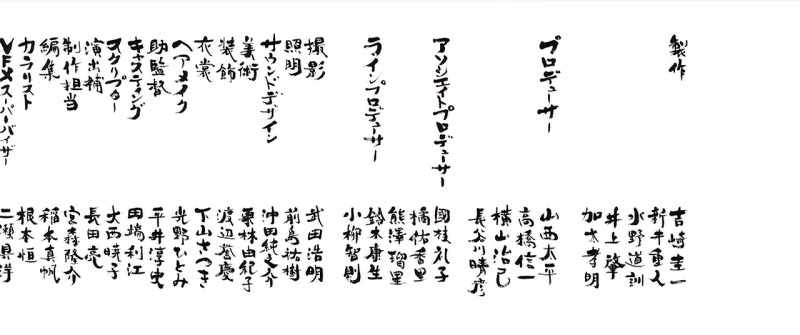 製作 吉崎圭一
新井重人
水野道訓
井上肇
加太孝明
プロデューサー 山西太平
高橋信一
横山治己
長谷川晴彦
アソシエイトプロデューサー 國枝礼子
橘佑香里
熊澤瑠里
ラインプロデューサー 鈴木康生
小柳智則
撮影 武田浩明
照明 前島祐樹
サウンドデザイン 沖田純之介
美術 栗林由紀子
装飾 渡辺誉慶
衣裳 下山さつき
ヘアメイク 光野ひとみ
助監督 平井淳史
キャスティング 田端利江
スクリプター 大西暁子
演出補 長田亮
制作担当 宮森隆介
編集 稲本真帆
カラリスト 根本恒
VFXスーパーバイザー